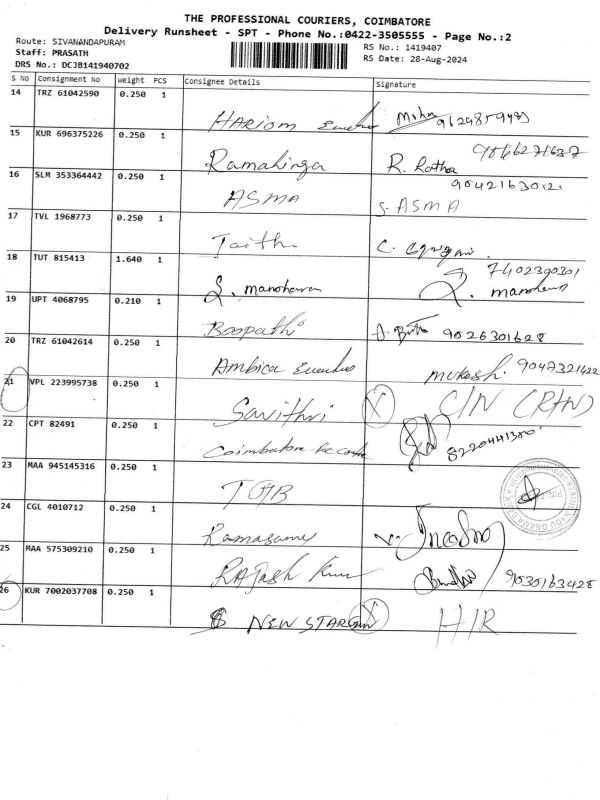 THE PROFESSIONAL COURIERS, COIMBATORE
Delivery Runsheet - SPT - Phone No.:0422-3505555 - Page No.:2
Route: SIVANANDAPURAM
RS No.: 1419407
Staff: PRASATH
RS Date: 28-Aug-2024
DRS No.: DCJB141940702
S No Consignment No Weight PCS Consignee Details Signature
14 TRZ 61042590 0.250 1
HARIOM
15 KUR 696375226 0.250 1
Ramalinga R. Ratha
16 SLM 353364442 0.250 1 9042163012
ASMA S. ASMA
17 TVL 1968773 0.250 1
C.
18 TUT 815413 1.640 1 7402390301
S. manoharan S. manoharan
19 UPT 4068795 0.210 1
Boopathi 9026301628
20 TRZ 61042614 0.250 1
Ambica mukesh. 9047321422
21 VPL 223995738 0.250 1
Savithri X C/N
22 CPT 82491 0.250 1
Coimbatore 8220441300
23 MAA 945145316 0.250 1
TGB
24 CGL 4010712 0.250 1
Ramasamy
25 MAA 575309210 0.250 1
Rajash Kumar 9030163428
26 KUR 7002037708 0.250 1
NEW STAR X H/R